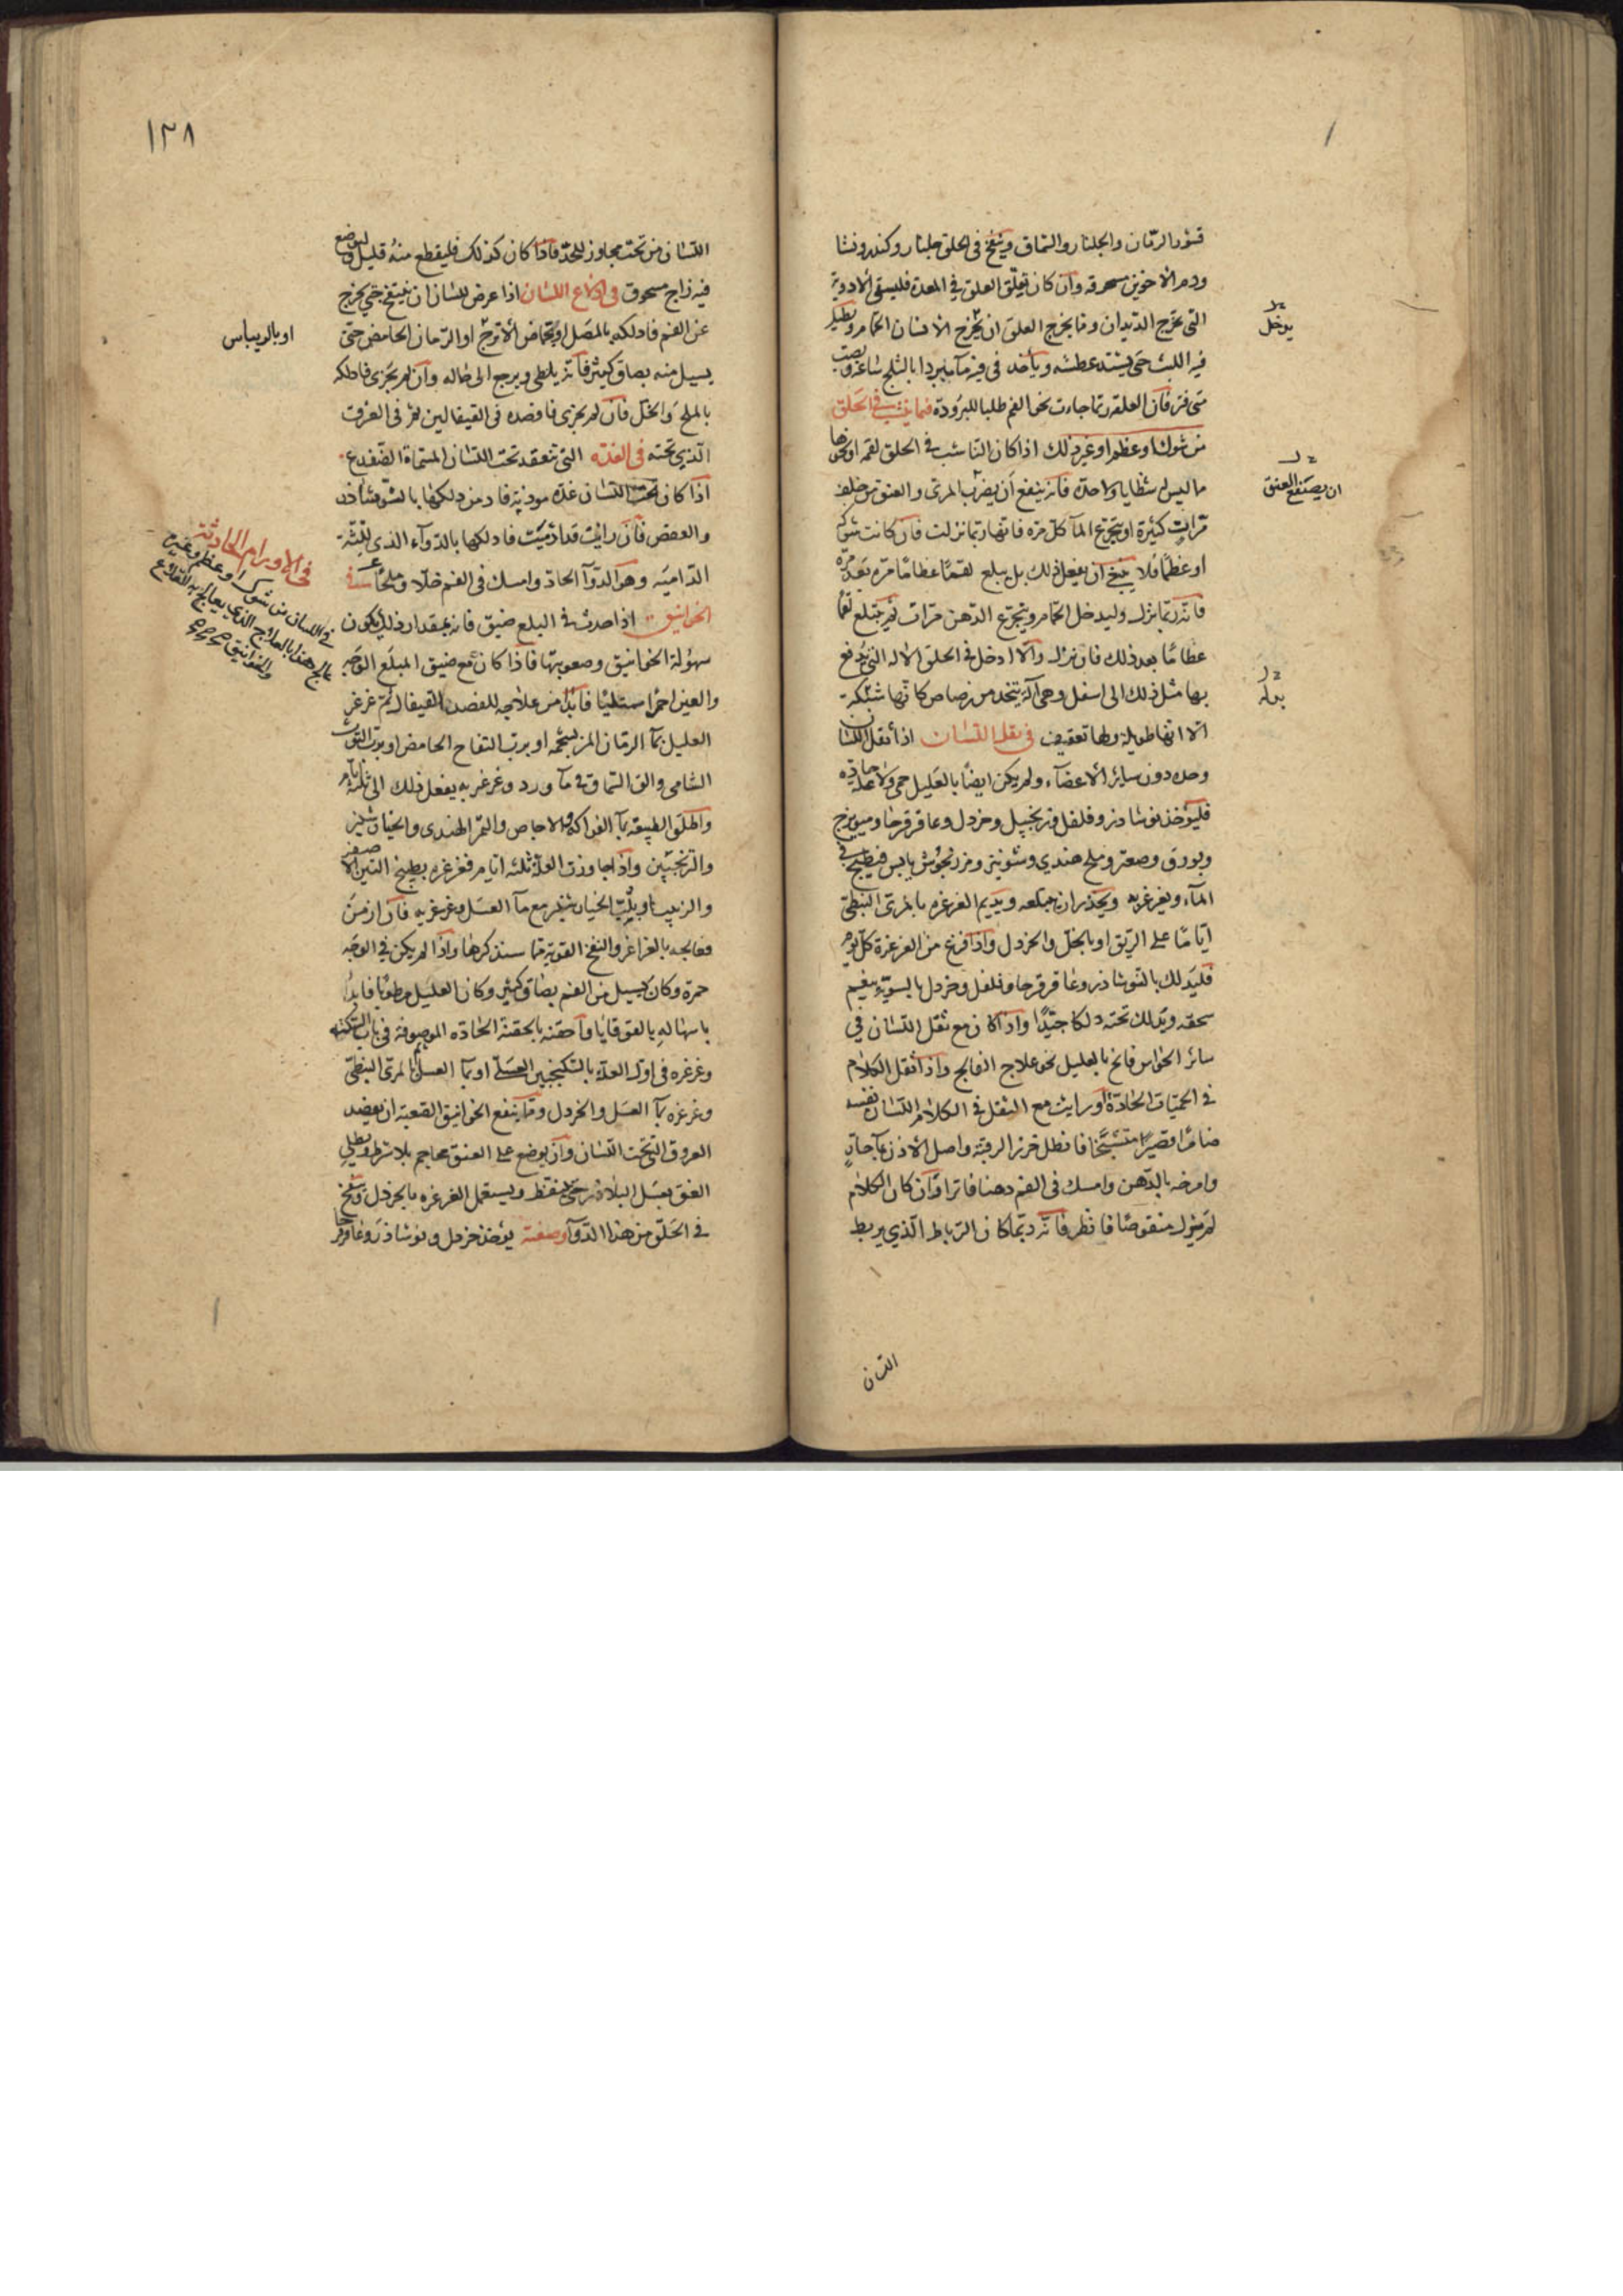 قشور الرمان والجلنار والسماق وينفخ فى الحلق جلنار وكندر ونشا
ودم الاخوين مسحوقه وان كان تعلق العلق فى المعدة فليسقى الادوية
التى تخرج الديدان ومما يخرج العلق ان يخرج الانسان الحمام ويطيل
فيه اللبث حتى يشتد عطشه وياخذ فى فيه مآ مبردا بالثلج ساعة ويصب
متى فتر فان العلقة ربما جاءت نحو الفم طلبا للبرودة فيما ينشب فى الحلق
من شوك او عظم او غير ذلك اذا كان الناشب فى الحلق لقمه او نحوها
مما ليس له شظايا ولا حدة فانه ينفع ان يضرب المرى والعنق من خلف
مرات كثيرة او يتجرع المآ كل مره فانها ربما نزلت فان كانت شوكه
او عظما فلا ينبغى ان يفعل ذلك بل يبلع لقما عظاما مره بعد مره
فانه ربما نزل وليدخل الحمام ويتجرع الدهن مرات ثم يبتلع لقما
عظاما بعد ذلك فان نزل والا ادخل فى الحلق الاله التى يدفع
بها مثل ذلك الى اسفل وهى آلة يتخذ من رصاص كانها شبكة
الا انها طويلة ولها تعقيف فى ثقل اللسان اذا ثقل اللسان
وحده دون سائر الاعضآء ولم يكن ايضا بالعليل حمى ولا علة حادة
فليؤخذ نوشاذر وفلفل وزنجبيل وخردل وعاقرقرحا وميويزج
وبورق وصعتر وملح هندى وشونيز ومرزنجوش يابس فيطبخ فى
المآء ويغرغر به ويحذر ان يبتلعه ويديم الغرغره بالمرى النبطى
اياما على الريق او بالخل والخردل واذا فرغ من الغرغرة كل يوم
فليدلك بالنوشاذر وعاقرقرحا وفلفل وخردل بالسوية ينعم
سحقه ويدلك تحته دلكا جيدا واذا كان مع ثقل اللسان فى
سائر الحواس فانح بالعليل نحو علاج الفالج واذا ثقل الكلام
فى الحميات الحادة او رايت مع الثقل فى الكلام اللسان نفسه
ضامرا قصيرا متشنجا فانطل خرز الرقبة واصل الاذن بمآ حار
وامرخه بالدهن وامسك فى الفم دهنا فاترا وان كان الكلام
لم يزل منقوصا فانظر فانه ربما كان الرباط الذى يربط
يدخل
ان يصفع العنق
بوله
اللسان
١٣٨
اللسان من تحت مجاوز للحد فاذا كان كذلك فليقطع منه قليل ويوضع
فيه زاج مسحوق فى ادلاع اللسان اذا عرض للسان ان ينتفخ حتى يخرج
عن الفم فادلكه بالمصل او بحماض الاترج او الرمان الحامض حتى
يسيل منه بصاق كثير فانه يلطى ويرجع الى حاله وان لم يجزى فادلكه
بالملح والخل فان لم يجزى فافصده فى القيفالين ثم فى العرق
الذى تحته فى الغدة التى تنعقد تحت اللسان المسماة الضفدع
اذا كان تحت اللسان غدة موذية فادمن دلكها بالنوشاذر
والعفص فان رايت قد ادميت فادلكها بالدوآء الذى للثة
الدامية وهو الدوآ الحاد وامسك فى الفم خلا وملحا فى
الخوانيق اذا حدث فى البلع ضيق فانه بمقدار ذلك يكون
سهولة الخوانيق وصعوبتها فاذا كان مع ضيق المبلع الوجه
والعين احمرا ممتلئا فابدا من علاجه للفصد القيفال ثم غرغر
العليل بمآ الرمان المز بشحمه او برب التفاح الحامض او برب التوت
الشامى والق السماق فى مآ ورد وغرغر به يفعل ذلك الى ثلثة ايام
واطلق الطبيعه بمآ الفواكه والاجاص والتمر الهندى والخيار شنبر
والترنجبين واذا جاوزت العلة ثلثه ايام فغرغره بطبيخ التين الاصفر
والزبيب او بلب الخيار شنبر مع مآ العسل وغرغر به فان ازمن
فعالجه بالغراغر والنفخ القوية مما سنذكرها واذا لم يكن فى الوجه
حمرة وكان يسيل من الفم بصاق كثير وكان العليل مرطوبا فابدا
باسهاله بالقوقايا واحقنه بالحقنة الحادة الموصوفة فى باب السكته
وغرغره فى اول العلة بالسكنجبين العسلى او بمآ العسل ثم بالمرى النبطى
وغرغره بمآ العسل والخردل ومما ينفع الخوانيق الصعبة ان يفصد
العروق التى تحت اللسان وان يوضع على العنق محاجم بلا شرط ويطلى
العنق بعسل البلاذر حتى يتنفط ويستعمل الغرغره بالخردل وينفخ
فى الحلق من هذا الدوآ وصفته يؤخذ خردل ونوشاذر وعاقرقرحا
او بالريباس
فى الاورام الحادثة
فى اللسان من شوك او عظم وغيره
عالج هذا بالعلاج الذى يعالج به القلاع
والخوانيق